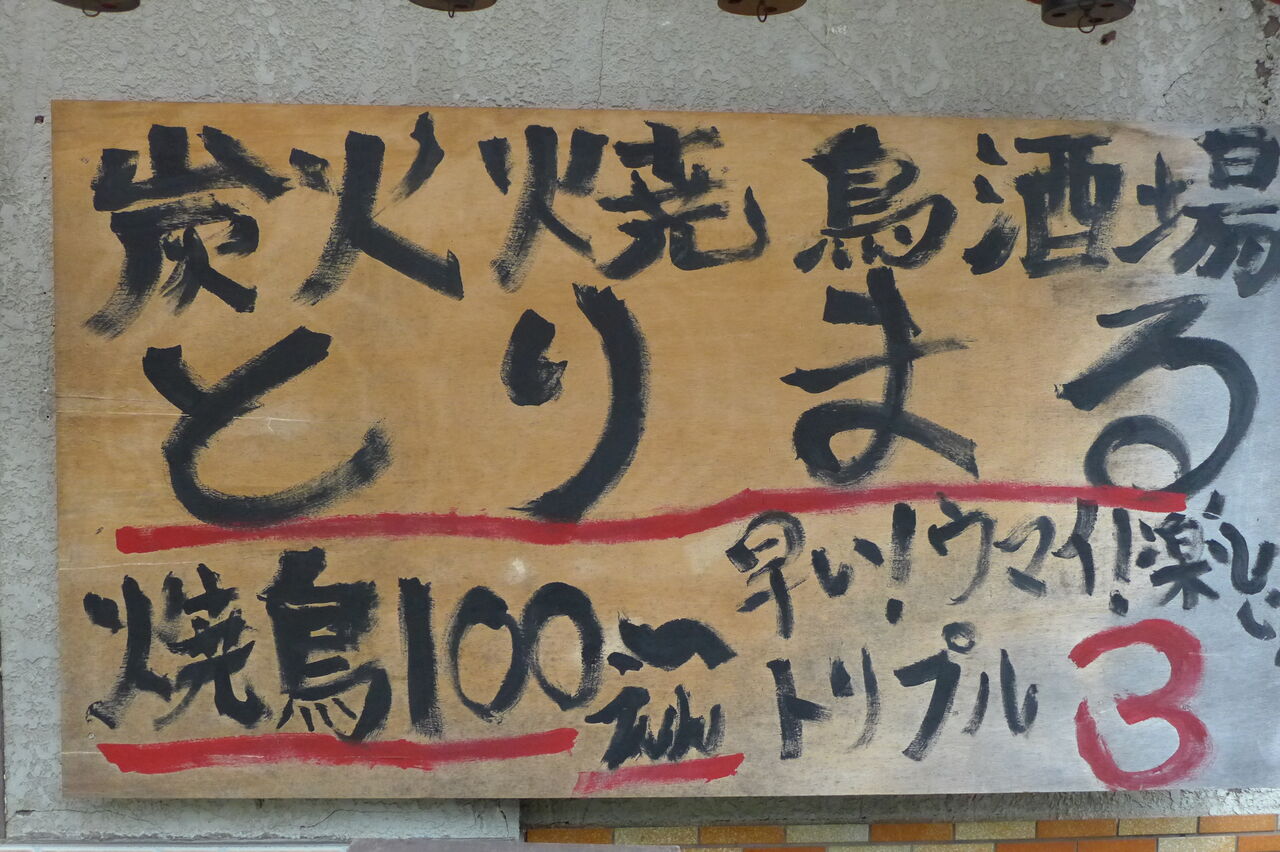 炭火焼鳥酒場
とりまる
早い!ウマイ!楽しい
焼鳥100
トリプル3